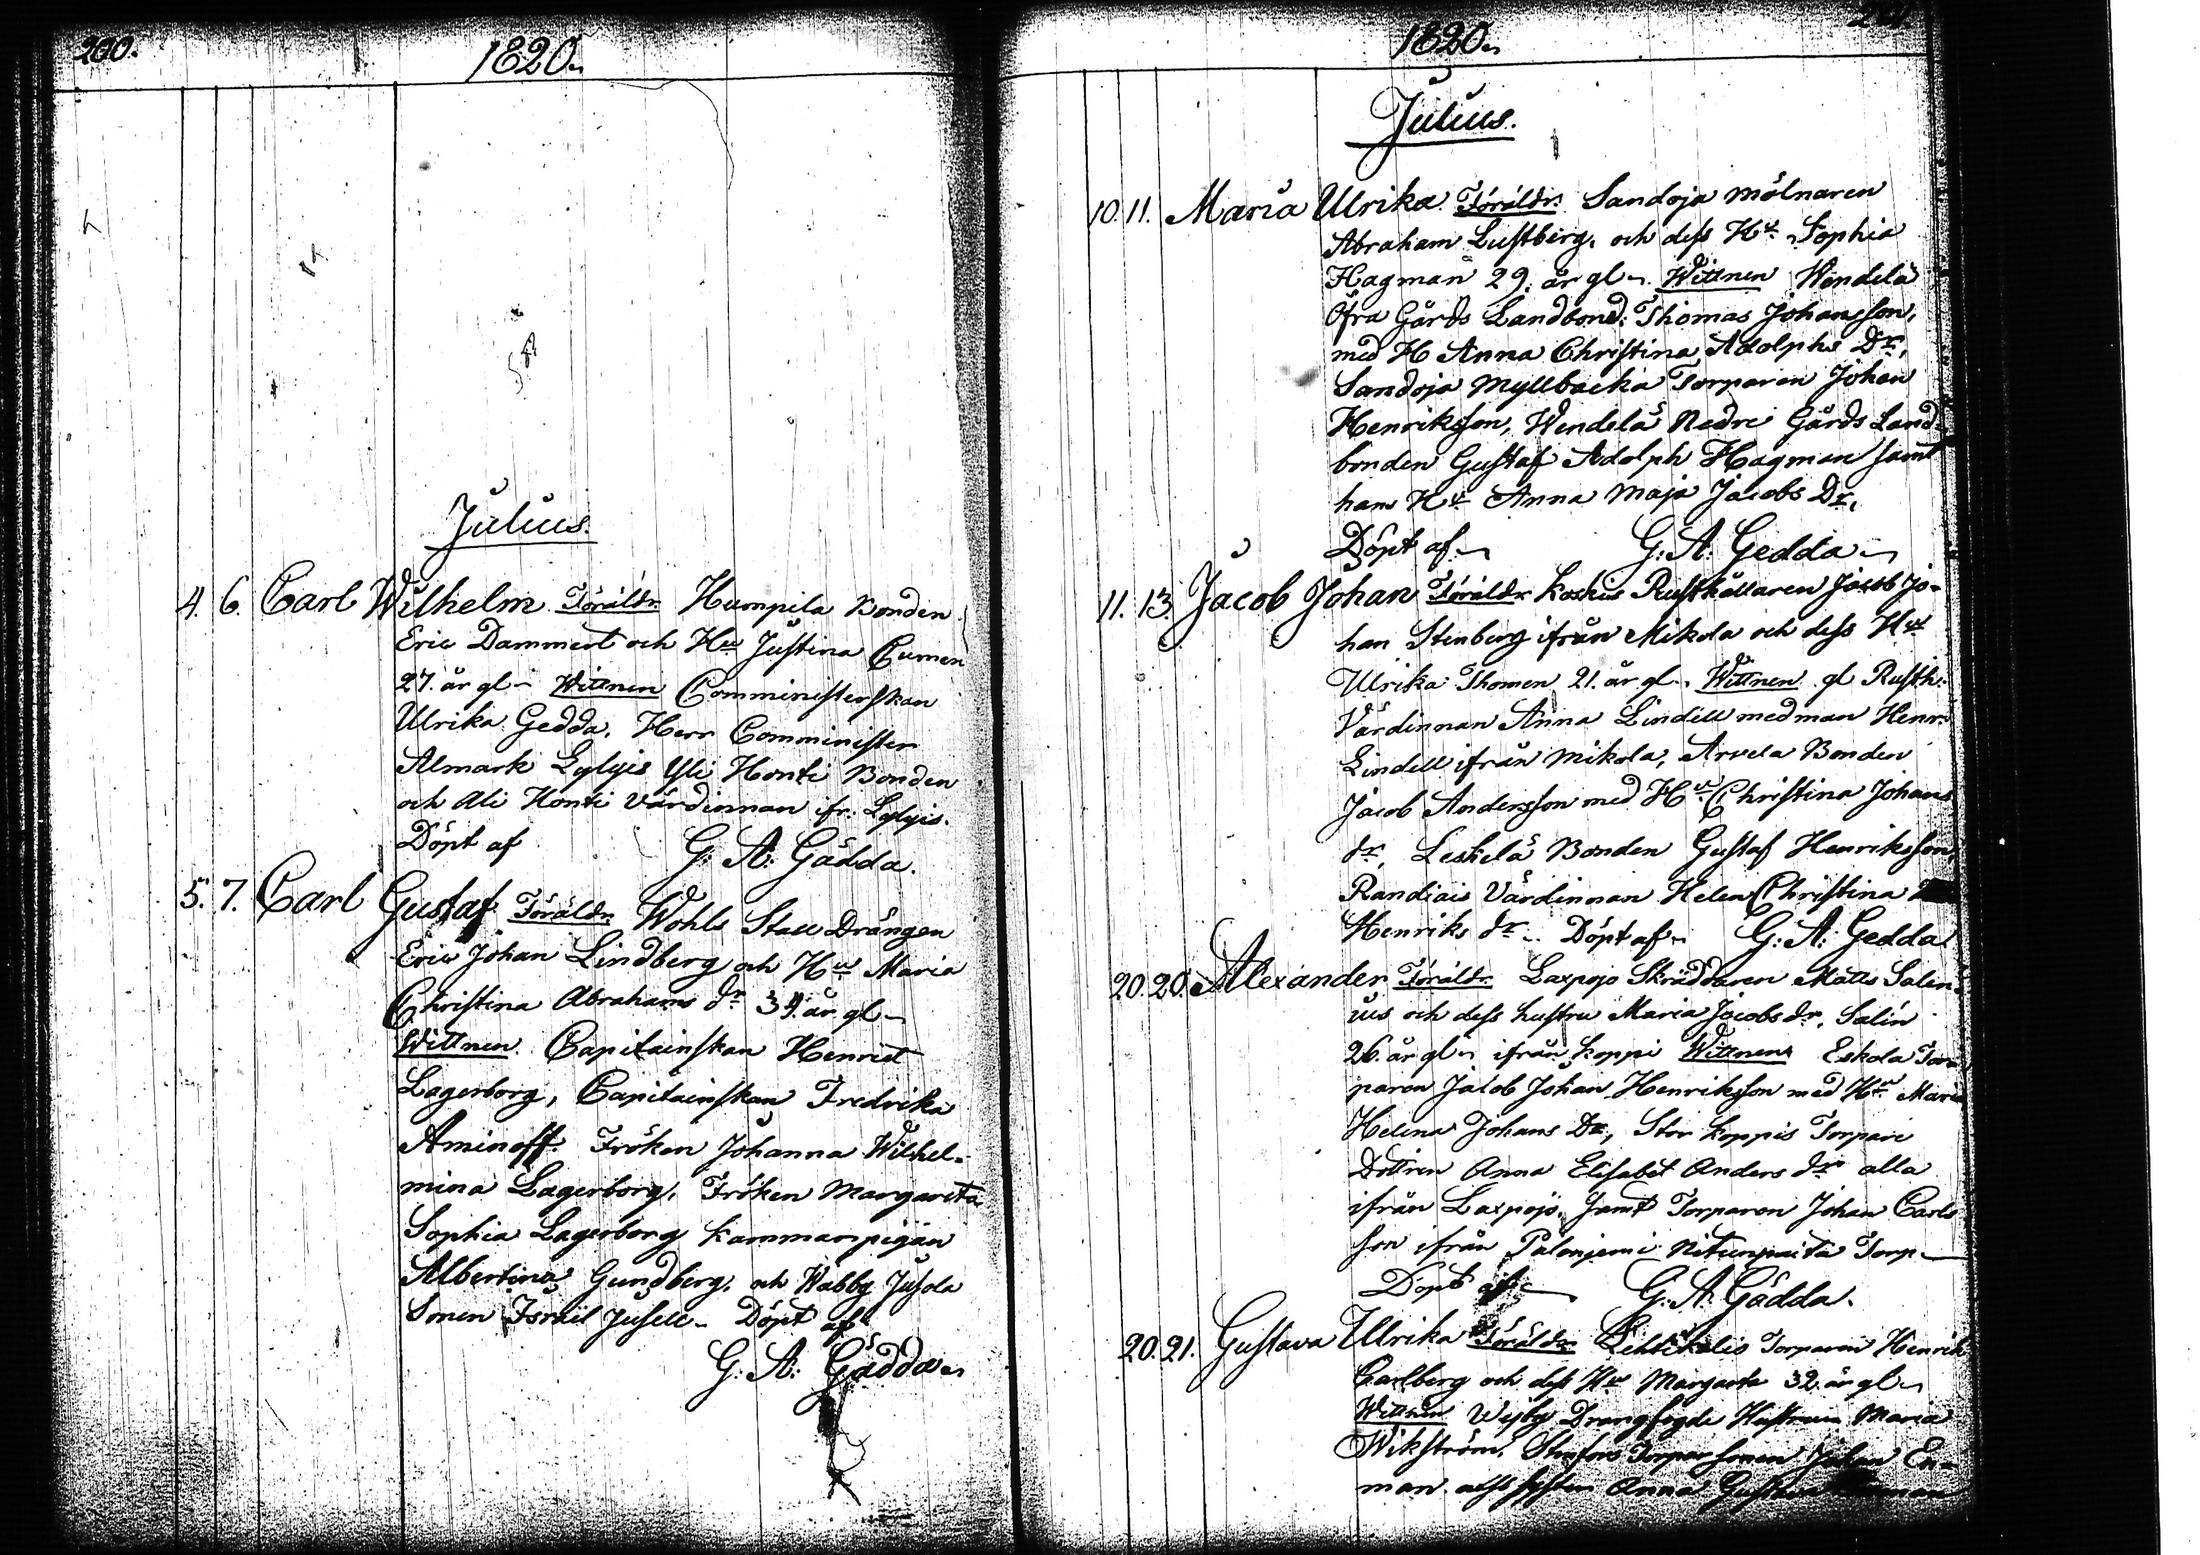 200.
1820.
Julius.
4. 6. Carl Wilhelm Föräldr. Humpila Bonden
Eric Dammert och Hu Justina Cumen
27. år gl. Wittnen Comministerskan
Ulrika Gedda, Herr Comminister
Almark Lylyis Yli Honti Bonden
och Ali Honti Värdinnan ifr. Lylyis.
Döpt af G: A: Gädda.
5. 7. Carl Gustaf Föräldr. Wohls Stall Drängen
Eric Johan Lindberg och Hu Maria
Christina Abrahams dr 34. år gl
Wittnen Capitainskan Henriet
Lagerborg, Capitainskan Fredrika
Aminoff. Fröken Johanna Wilhel-
mina Lagerborg, Fröken Margareta
Sophia Lagerborg Kammarpigan
Albertina Gundberg, och Wabby Jusola
Sonen Israel Jusell. Döpt af
G: A: Gädda
1820.
Julius.
10. 11. Maria Ulrika Föräldr. Sandoja mölnaren
Abraham Lustberg, och dess Hu Sophia
Hagman 29. år gl. Wittnen Wendelä
Öfra Gårds Landbond: Thomas Johansson,
med H Anna Christina Adolphs Dr,
Sandoja Myllbacka Torparen Johan
Henriksson, Wendelä Nedre Gårds Land-
bonden Gustaf Adolph Hagman samt
hans Hu Anna Maja Jacobs Dr.
Döpt af G: A: Gedda
11. 13. Jacob Johan Föräldr Koskis Rusthållaren Jacob Jo-
han Stenberg ifrån Mikola och dess Hu
Ulrika Thomen 21. år gl. Wittnen gl Rusth:
Värdinnan Anna Lindell med man Henr:
Lindell ifrån Mikola, Arvela Bonden
Jacob Andersson med Hu Christina Johans
dr, Leskelä Bonden Gustaf Henriksson,
Randiais Värdinnan Helen Christina
Henriks dr Döpt af G: A: Gedda
20. 20. Alexander Föräldr. Laxpojo Skräddaren Matts Salen-
ius och dess hustru Maria Jacobs dr, Salin
26. år gl ifrån Koppi Wittnen Eskola Tor-
paren Jacob Johan Henriksson med Hu Maria
Helena Johans Dr, Stor Koppis Torpare
Dottren Anna Elisabet Anders dr alla
ifrån Laxpojo, samt Torparen Johan Carls
son ifrån Palonjemi Torp
Döpt af G: A: Gädda.
20. 21. Gustava Ulrika Föräldr. Torparen Henrik
Carlberg och dess Hu Margareta 32. år gl
Wittnen Drängfogde Hustrun Maria
Wikström, Torpar sonen Johan En-
man Anna Gustava